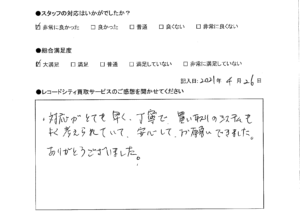 ●スタッフの対応はいかがでしたか?
☑非常に良かった □良かった □普通 □良くない □非常に良くない
●総合満足度
☑大満足 □満足 □普通 □満足していない □非常に満足していない
記入日:2021年4月26日
●レコードシティ買取サービスのご感想を聞かせてください
・対応がとても早く、丁寧で買い取りのシステムも
よく考えられていて、安心して、お願いできました。
ありがとうございました。